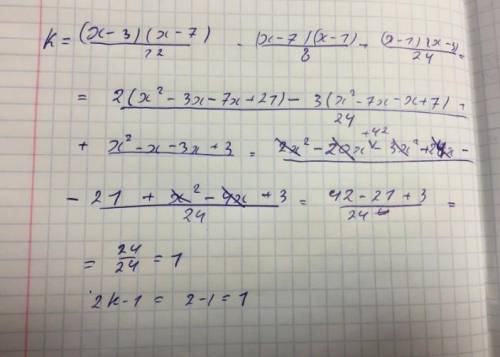 K = (x-3)(x-7)/12 - (x-7)(x-1)/8 + (x-1)(x-3)/24 =
= 2(x² - 3x - 7x + 21) - 3(x² - 7x - x + 7) +/24
+ x² - x - 3x + 3 = 2x² - 20x +42 - 3x² + 24x -
- 21 + x² - 4x + 3/24 = 42 - 21 + 3/24 =
= 24/24 = 1
2K-1 = 2-1 = 1